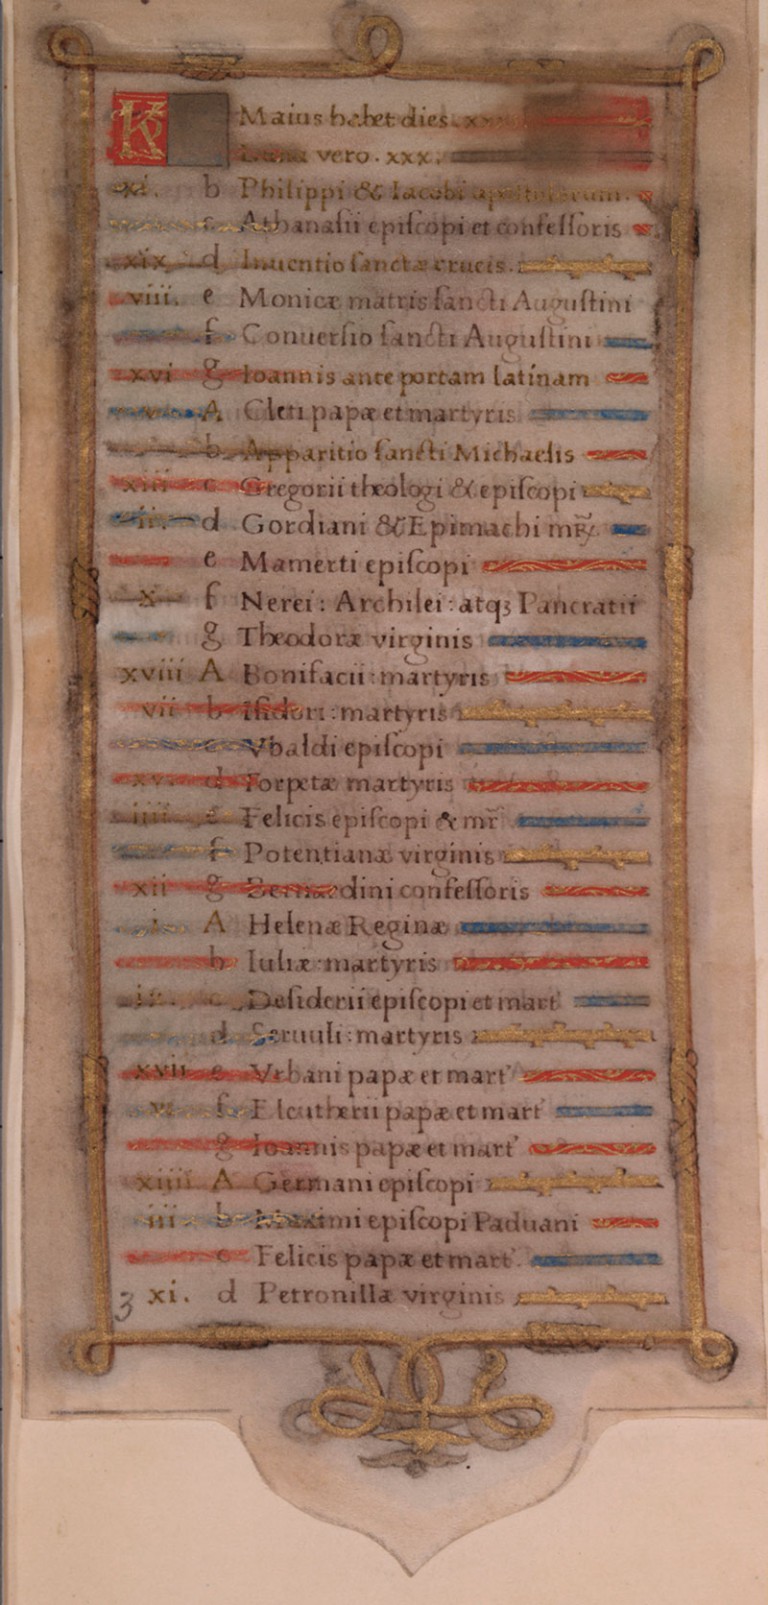 K Maius habet dies. xxx
Luna vero. xxx.
xi. b Philippi & Iacobi apostolorum.
c Athanasii episcopi et confessoris
xix d Inuentio sanctæ crucis.
viii. e Monicæ matris sancti Augustini
f Conuersio sancti Augustini
xvi g Ioannis ante portam latinam
v A Cleti papæ et martyris
b Apparitio sancti Michaelis
xiii c Gregorii theologi & episcopi
ii. d Gordiani & Epimachi mr̃
e Mamerti episcopi
x f Nerei: Archilei: atq3 Pancratii
g Theodoræ virginis
xviii A Bonifacii: martyris
vii b Isidori: martyris
c Vbaldi episcopi
xv. d Torpetæ martyris
iiii e Felicis episcopi & mr̃
f Potentianæ virginis
xii g Bernardini confessoris
i. A Helenæ Reginæ
b Iuliæ martyris
ix. c Desiderii episcopi et mart'
d Seruuli: martyris
xvii e Vrbani papæ et mart'
vi f Eleutherii papæ et mart'
g Ioannis papæ et mart'
xiiii A Germani episcopi
iii b Maximi episcopi Paduani
c Felicis papæ et mart'.
3 xi. d Petronillæ virginis